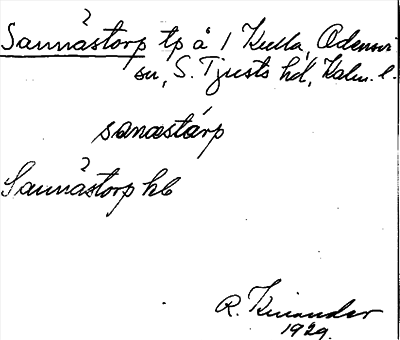 ?
Sannåstorp tp å 1 Kulla, Odensvi
sn, S. Tjusts hd, Kalm. l.
sanɑstárp
?
Sannåstorp hb
R. Kinander
1929.